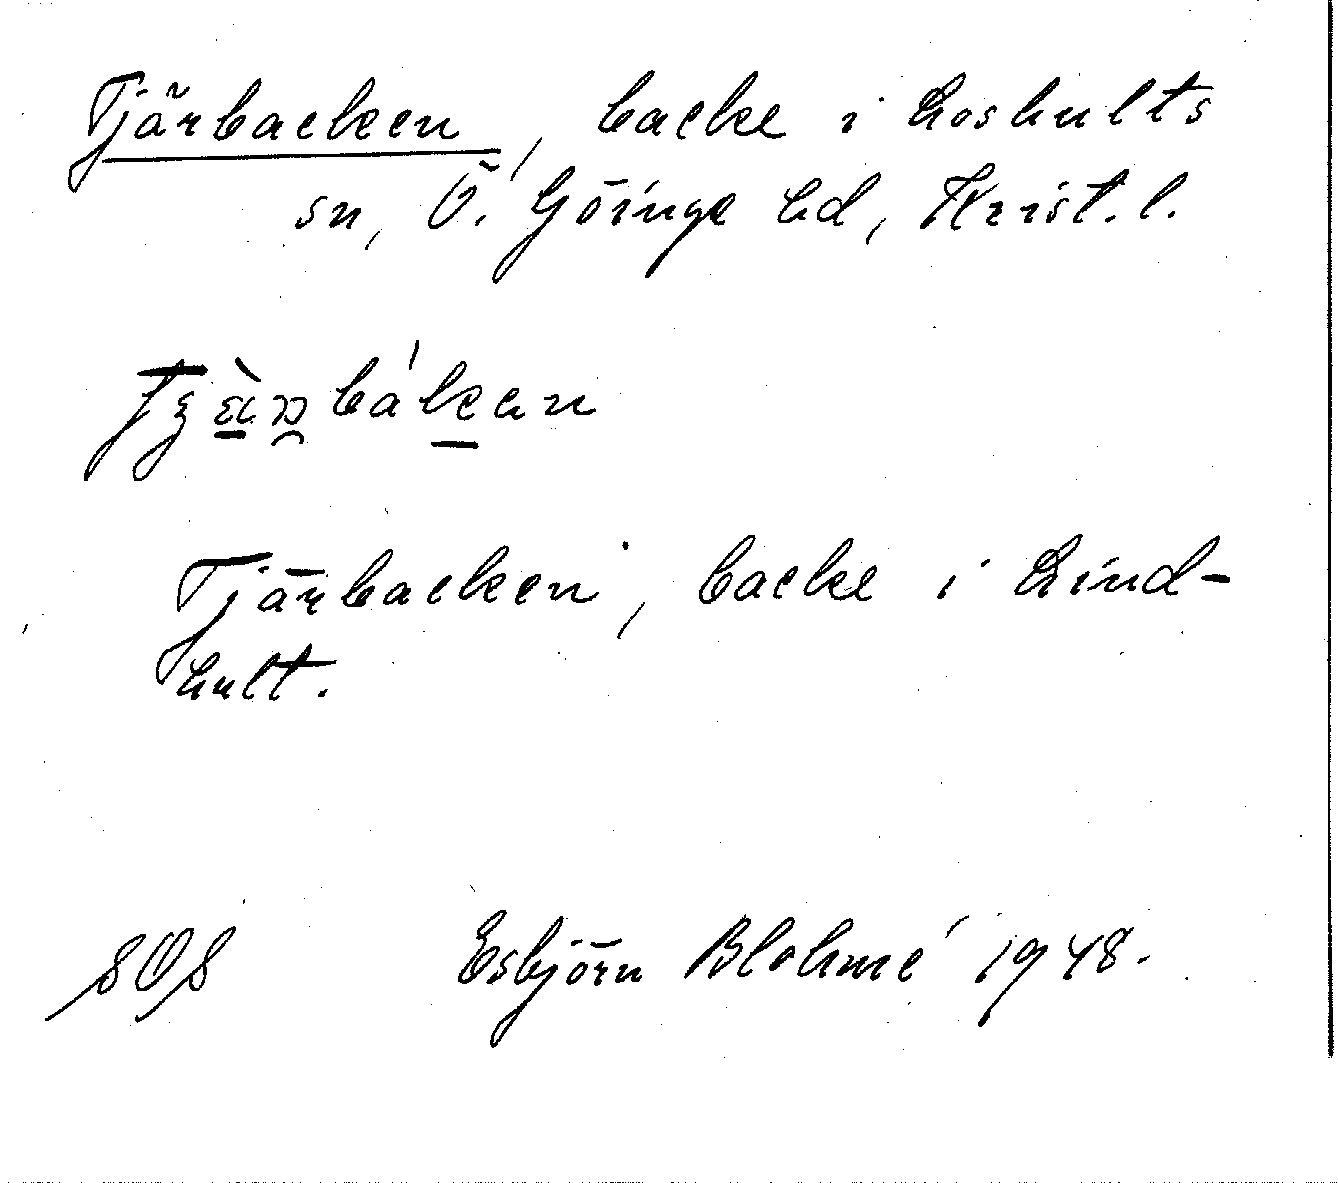 Tjärbacken, backe i Loshults
sn, Ö. Göinge hd, Krist. l.
Tjärbacken, backe i Lind-
hult.
808 Esbjörn Blohmé 1948.